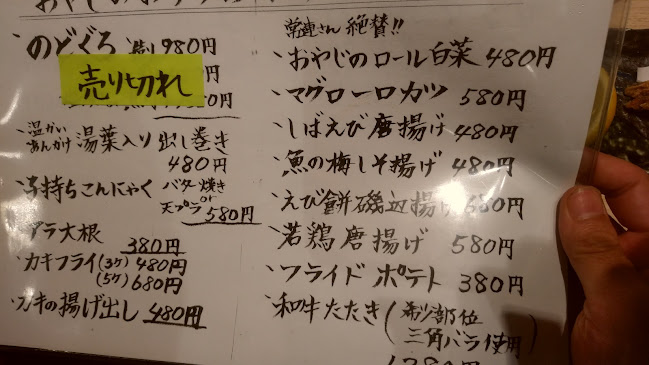 のどぐろ 980円
売り切れ
円
温かい
あんかけ 湯葉入り 出し巻き
480円
子持ちこんにゃく バター焼き
天プラ 580円
アラ大根 380円
カキフライ(3ケ) 480円
(5ケ) 680円
カキの揚げ出し 480円
常連さん 絶賛!!
おやじのロール白菜 480円
マグローロカツ 580円
しばえび唐揚げ 480円
魚の梅しそ揚げ 480円
えび餅磯辺揚げ 680円
若鶏唐揚げ 580円
フライドポテト 380円
和牛たたき (希少部位
三角バラ使用)